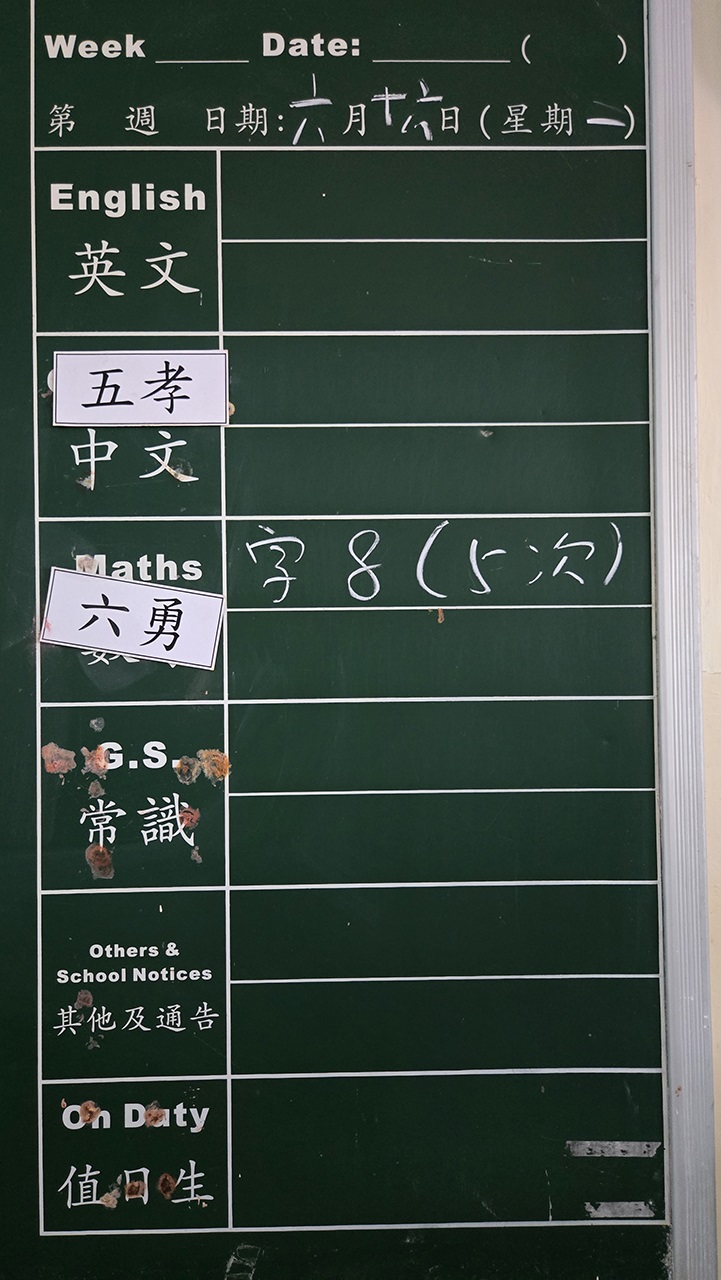 Week ______ Date: __________ (    )
第 週 日期:六月十六日(星期一)
English
英文
五孝
中文
Maths 字8(5次)
六勇
G.S.
常識
Others &
School Notices
其他及通告
On Duty
值日生